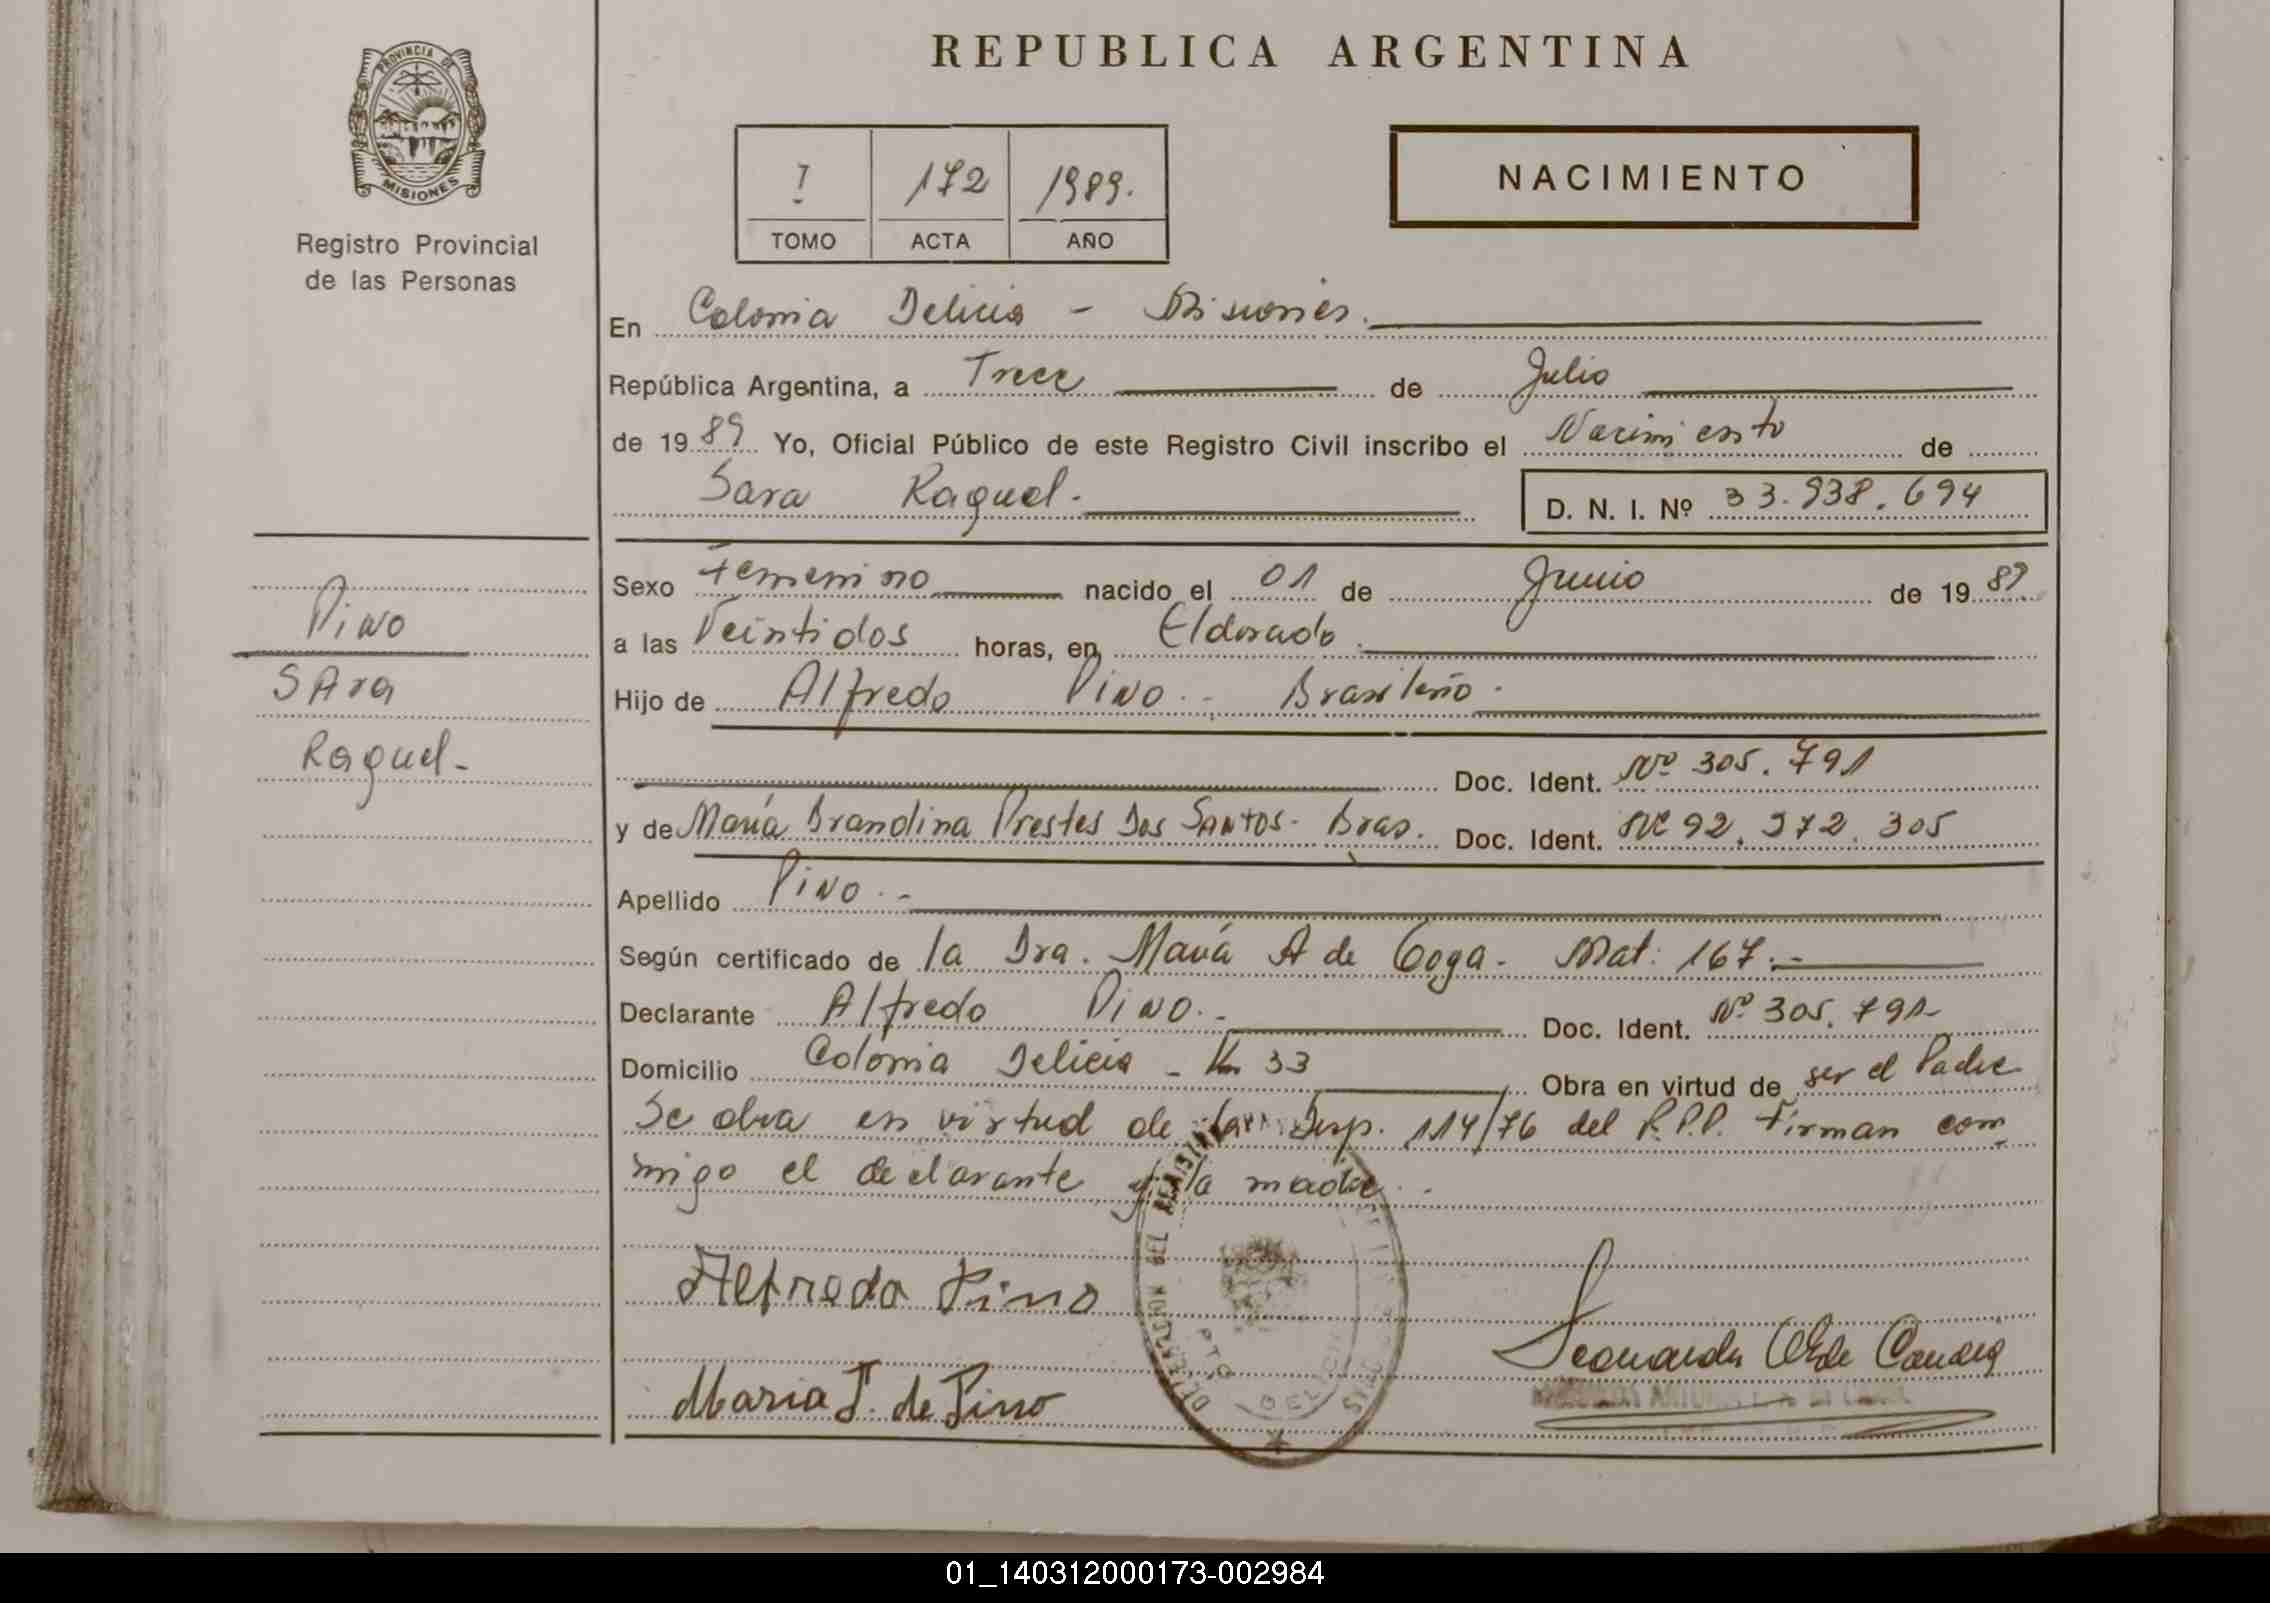 REPUBLICA ARGENTINA
PROVINCIA DE
MISIONES
Registro Provincial
de las Personas
I 172 1989.
TOMO ACTA AÑO
NACIMIENTO
En Colonia Delicia - Misiones.
República Argentina, a Trece de Julio
de 1989 Yo, Oficial Público de este Registro Civil inscribo el Nacimiento de
Sara Raquel.
D. N. I. Nº 33.938.694
Pino
Sara
Raquel-
Sexo Femenino nacido el 01 de Junio de 1989
a las Veintidos horas, en Eldorado.
Hijo de Alfredo Pino.- Brasileño.
Doc. Ident. Nº 305.791
y de María Brandina Prestes Dos Santos- Bras. Doc. Ident. Nº 92.372.305
Apellido Pino.-
Según certificado de la Dra. María A de Goga- Mat: 167.-
Declarante Alfredo Pino.- Doc. Ident. Nº 305.791-
Domicilio Colonia Delicia - Km 33 Obra en virtud de ser el Padre
Se obra en virtud de la Disp. 114/76 del R.P.P. Firman con
migo el declarante y la madre.-
Alfredo Pino
Maria P. de Pino
DELEGACION DEL REGISTRO
CIVIL
PTO DELICIA
Leonarda
01_140312000173-002984